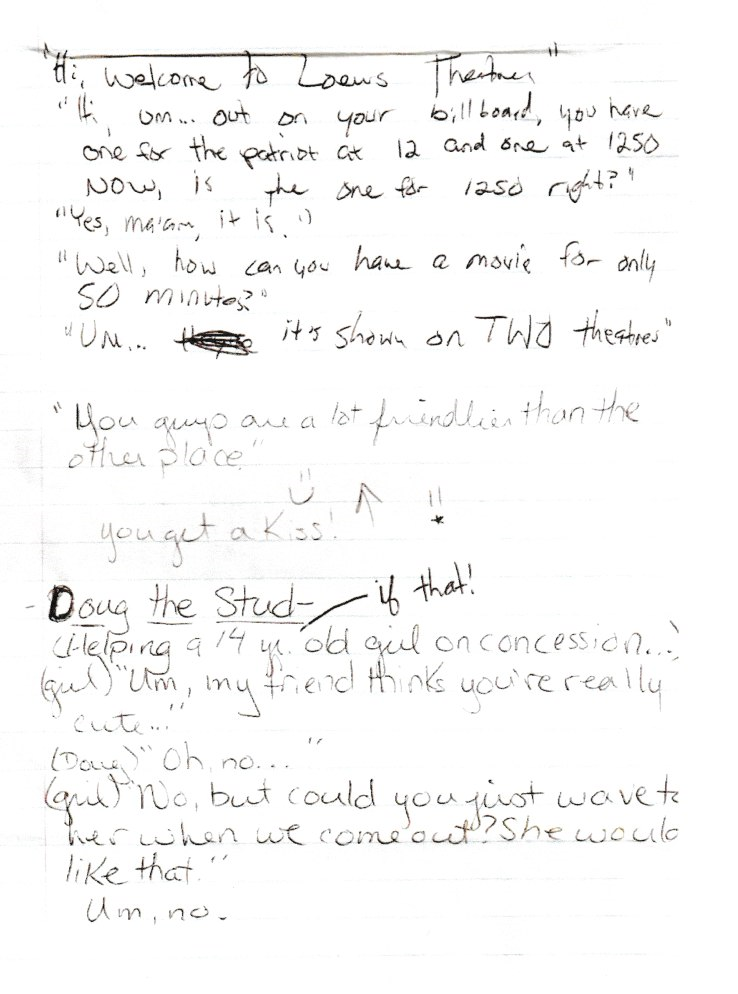 "Hi, Welcome to Loews Theatres"
"Hi, um... out on your billboard, you have
one for the patriot at 12 and one at 1250
NOW, is the one for 1250 right?"
"Yes, ma'am, it is."
"Well, how can you have a movie for only
50 minutes?"
"Um... it's shown on TWO theatres"
"You guys are a lot friendlier than the
other place"
you get a Kiss! ↑ !!
- Doug the Stud- if that!
(Helping a 14 yr. old girl on concession...)
(girl) "Um, my friend thinks you're really
cute..."
(Doug) "Oh, no..."
(girl) "No, but could you just wave to
her when we come out? She would
like that."
Um, no.